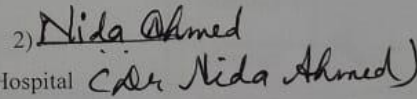 2) Nida Ahmed
Hospital (Dr Nida Ahmed)